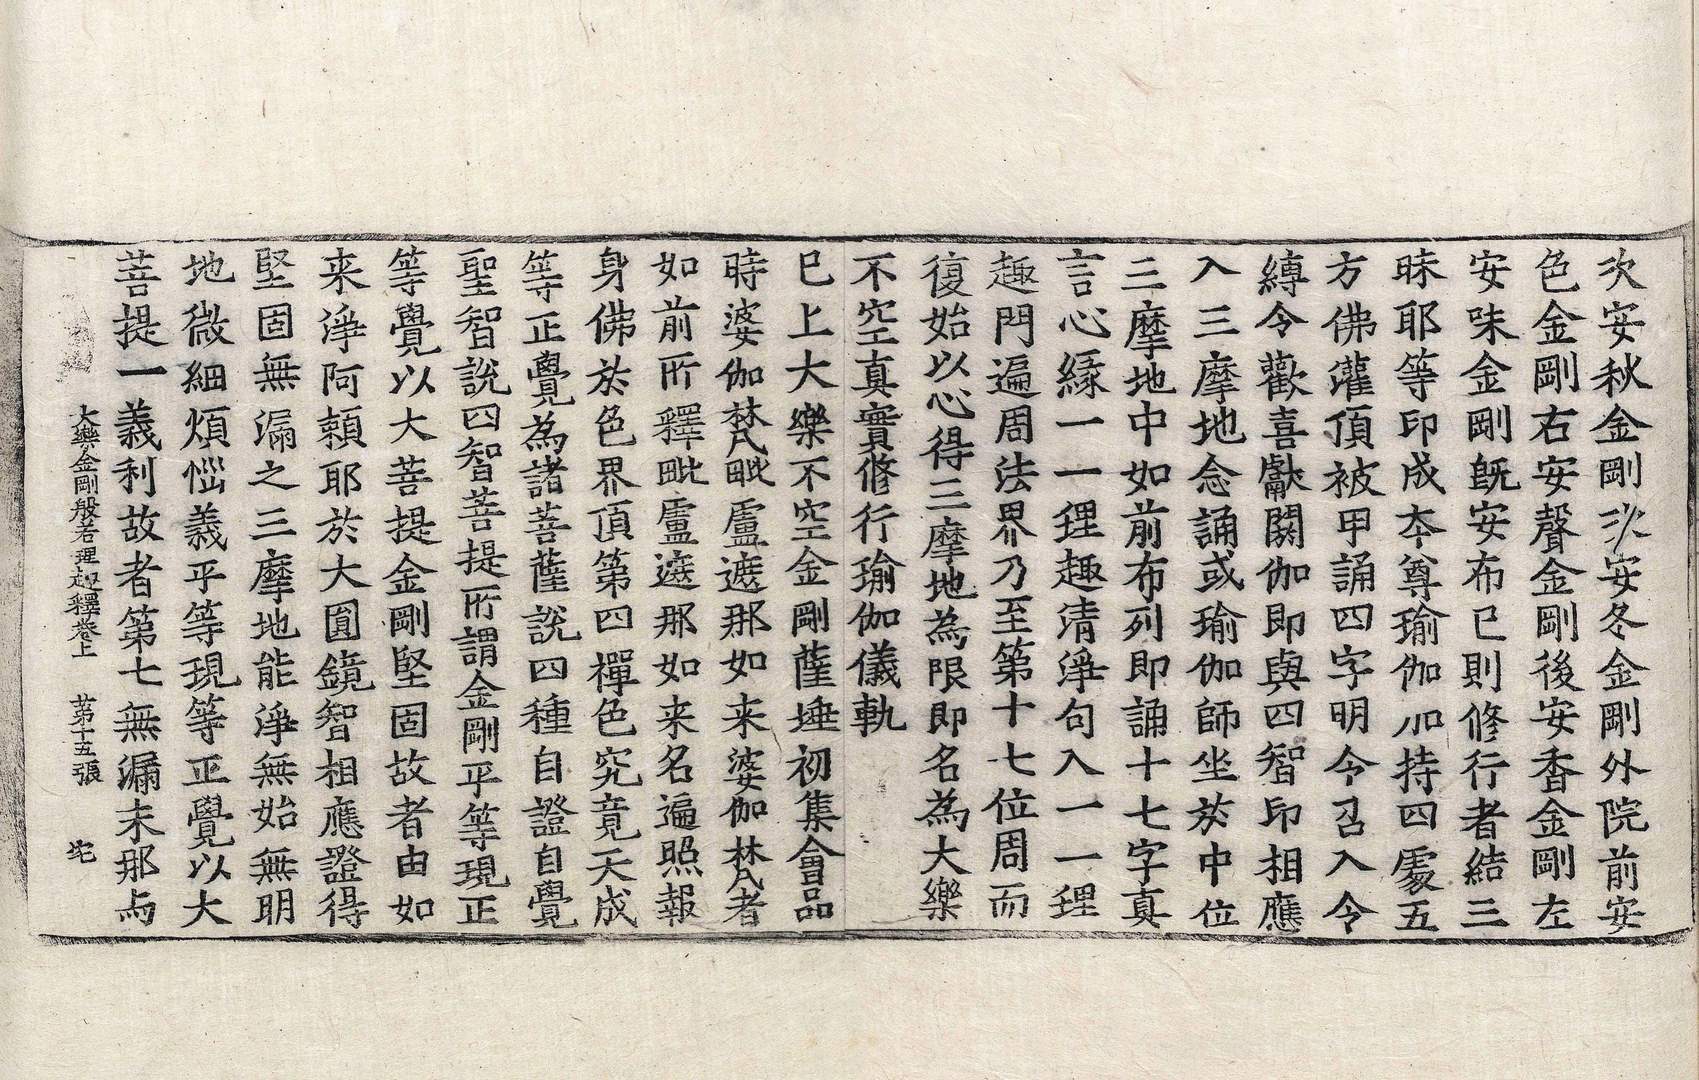 次安秋金剛次安冬金剛外院前安
色金剛右安聲金剛後安香金剛左
安味金剛旣安布已則修行者結三
昧耶等印成夲尊瑜伽加持四處五
方佛灌頂被甲誦四字明令召入令
縛令歡喜獻閼伽即與四智印相應
入三摩地念誦或瑜伽師坐於中位
三摩地中如前布列即誦十七字真
言心緣一一理趣清淨句入一一理
趣門遍周法界乃至第十七位周而
復始以心得三摩地為限即名為大樂
不空真實修行瑜伽儀軌
已上大樂不空金剛薩埵初集會品
時婆伽梵毗盧遮那如来婆伽梵者
如前所釋毗盧遮那如来名遍照報
身佛於色界頂第四禪色究竟天成
等正覺為諸菩薩說四種自證自覺
聖智說四智菩提所謂金剛平等現正
等覺以大菩提金剛堅固故者由如
来淨阿賴耶於大圓鏡智相應證得
堅固無漏之三摩地能淨無始無明
地微細煩惱義平等現等正覺以大
菩提一義利故者第七無漏末那与
大樂金剛般若理趣釋卷上　第十五張　宅